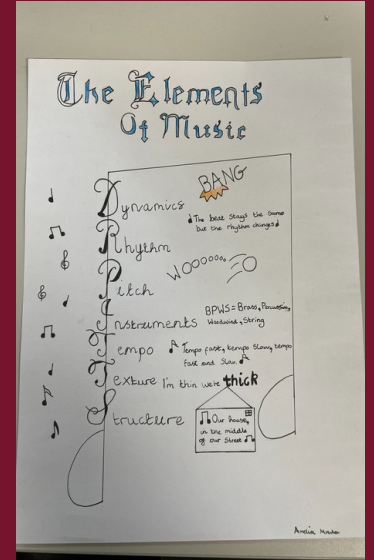 The Elements
Of Music
BANG
Dynamics
The beat stays the same
but the rhythm changes
Rhythm
Wooooooo
Pitch
BPWS = Brass, Percussion,
Woodwind, String
Instruments
Tempo
Tempo fast, tempo slow, tempo
fast and slow
Texture I'm thin we're thick
Structure
Our house,
in the middle
of our street
Amelia